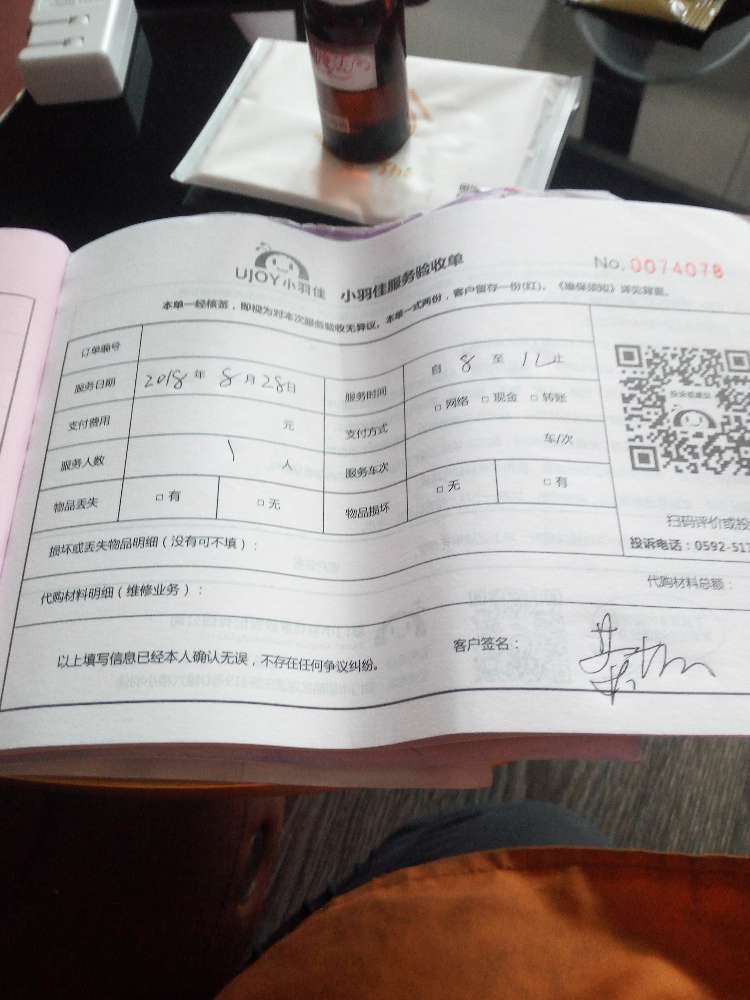 UJOY小羽佳 小羽佳服务验收单 No.0074078
本单一经核签，即视为对本次服务验收无异议。本单一式两份，客户留存一份(红)。《维保须知》详见背面。
订单编号
服务日期 2018年 8月28日 服务时间 自 8 至 12止
支付费用 元 支付方式 □网络 □现金 □转账
服务人数 1 人 服务车次 车/次
物品丢失 □有 □无 物品损坏 □无 □有
扫码评价或投
投诉电话：0592-517
损坏或丢失物品明细（没有可不填）：
代购材料明细（维修业务）： 代购材料总额：
以上填写信息已经本人确认无误，不存在任何争议纠纷。 客户签名：